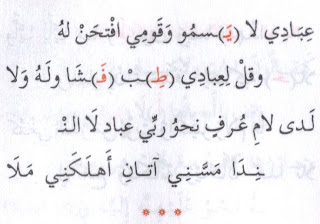 عِبَادِي لَا (يَـ)ـسمُو وَقَومِي افْتَحَنْ لَهُ
وقلْ لِعِبادِي (طِـ)ـبْ (فَـ)ـشَا ولَهُ وَلا
لَدى لامِ عُرفٍ نحوُ ربِّي عباد لَا النْـ
ـنِدَا مَسَّنِي آتانِ أَهلَكَنِي مَلَا
* * *